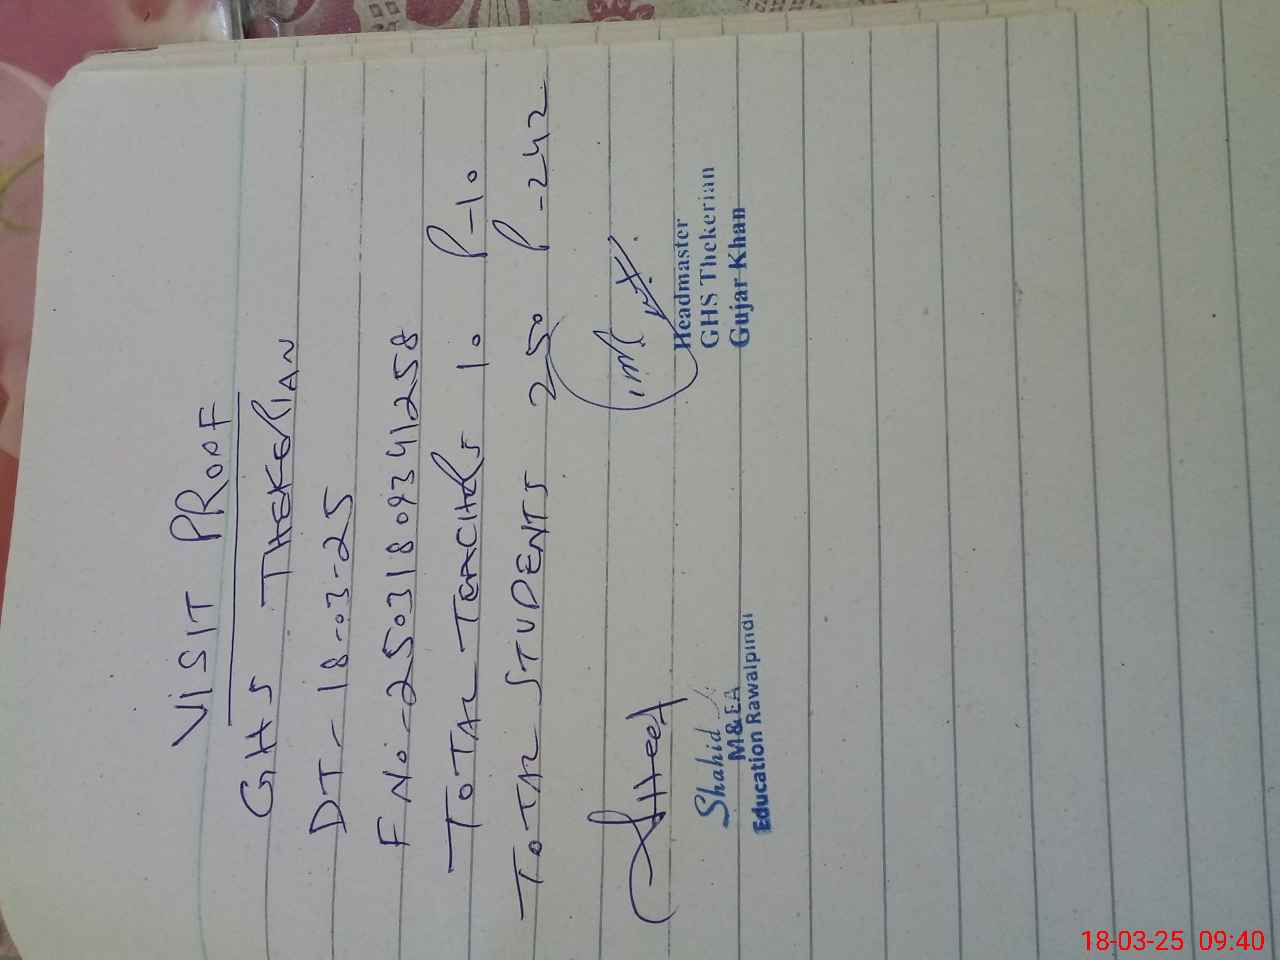 VISIT PROOF
GHS THEKERIAN
DT - 18-03-25
F No - 25031809341258
TOTAL TEACHERS 10 P-10
TOTAL STUDENTS 250 P-242
Headmaster
GHS Thekerian
Gujar Khan
Shahid
M&EA
Education Rawalpindi
18-03-25 09:40